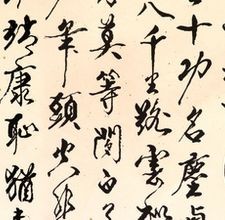 十功名塵與
八千里路雲和
莫等閒白了
年頭空悲
靖康恥猶未